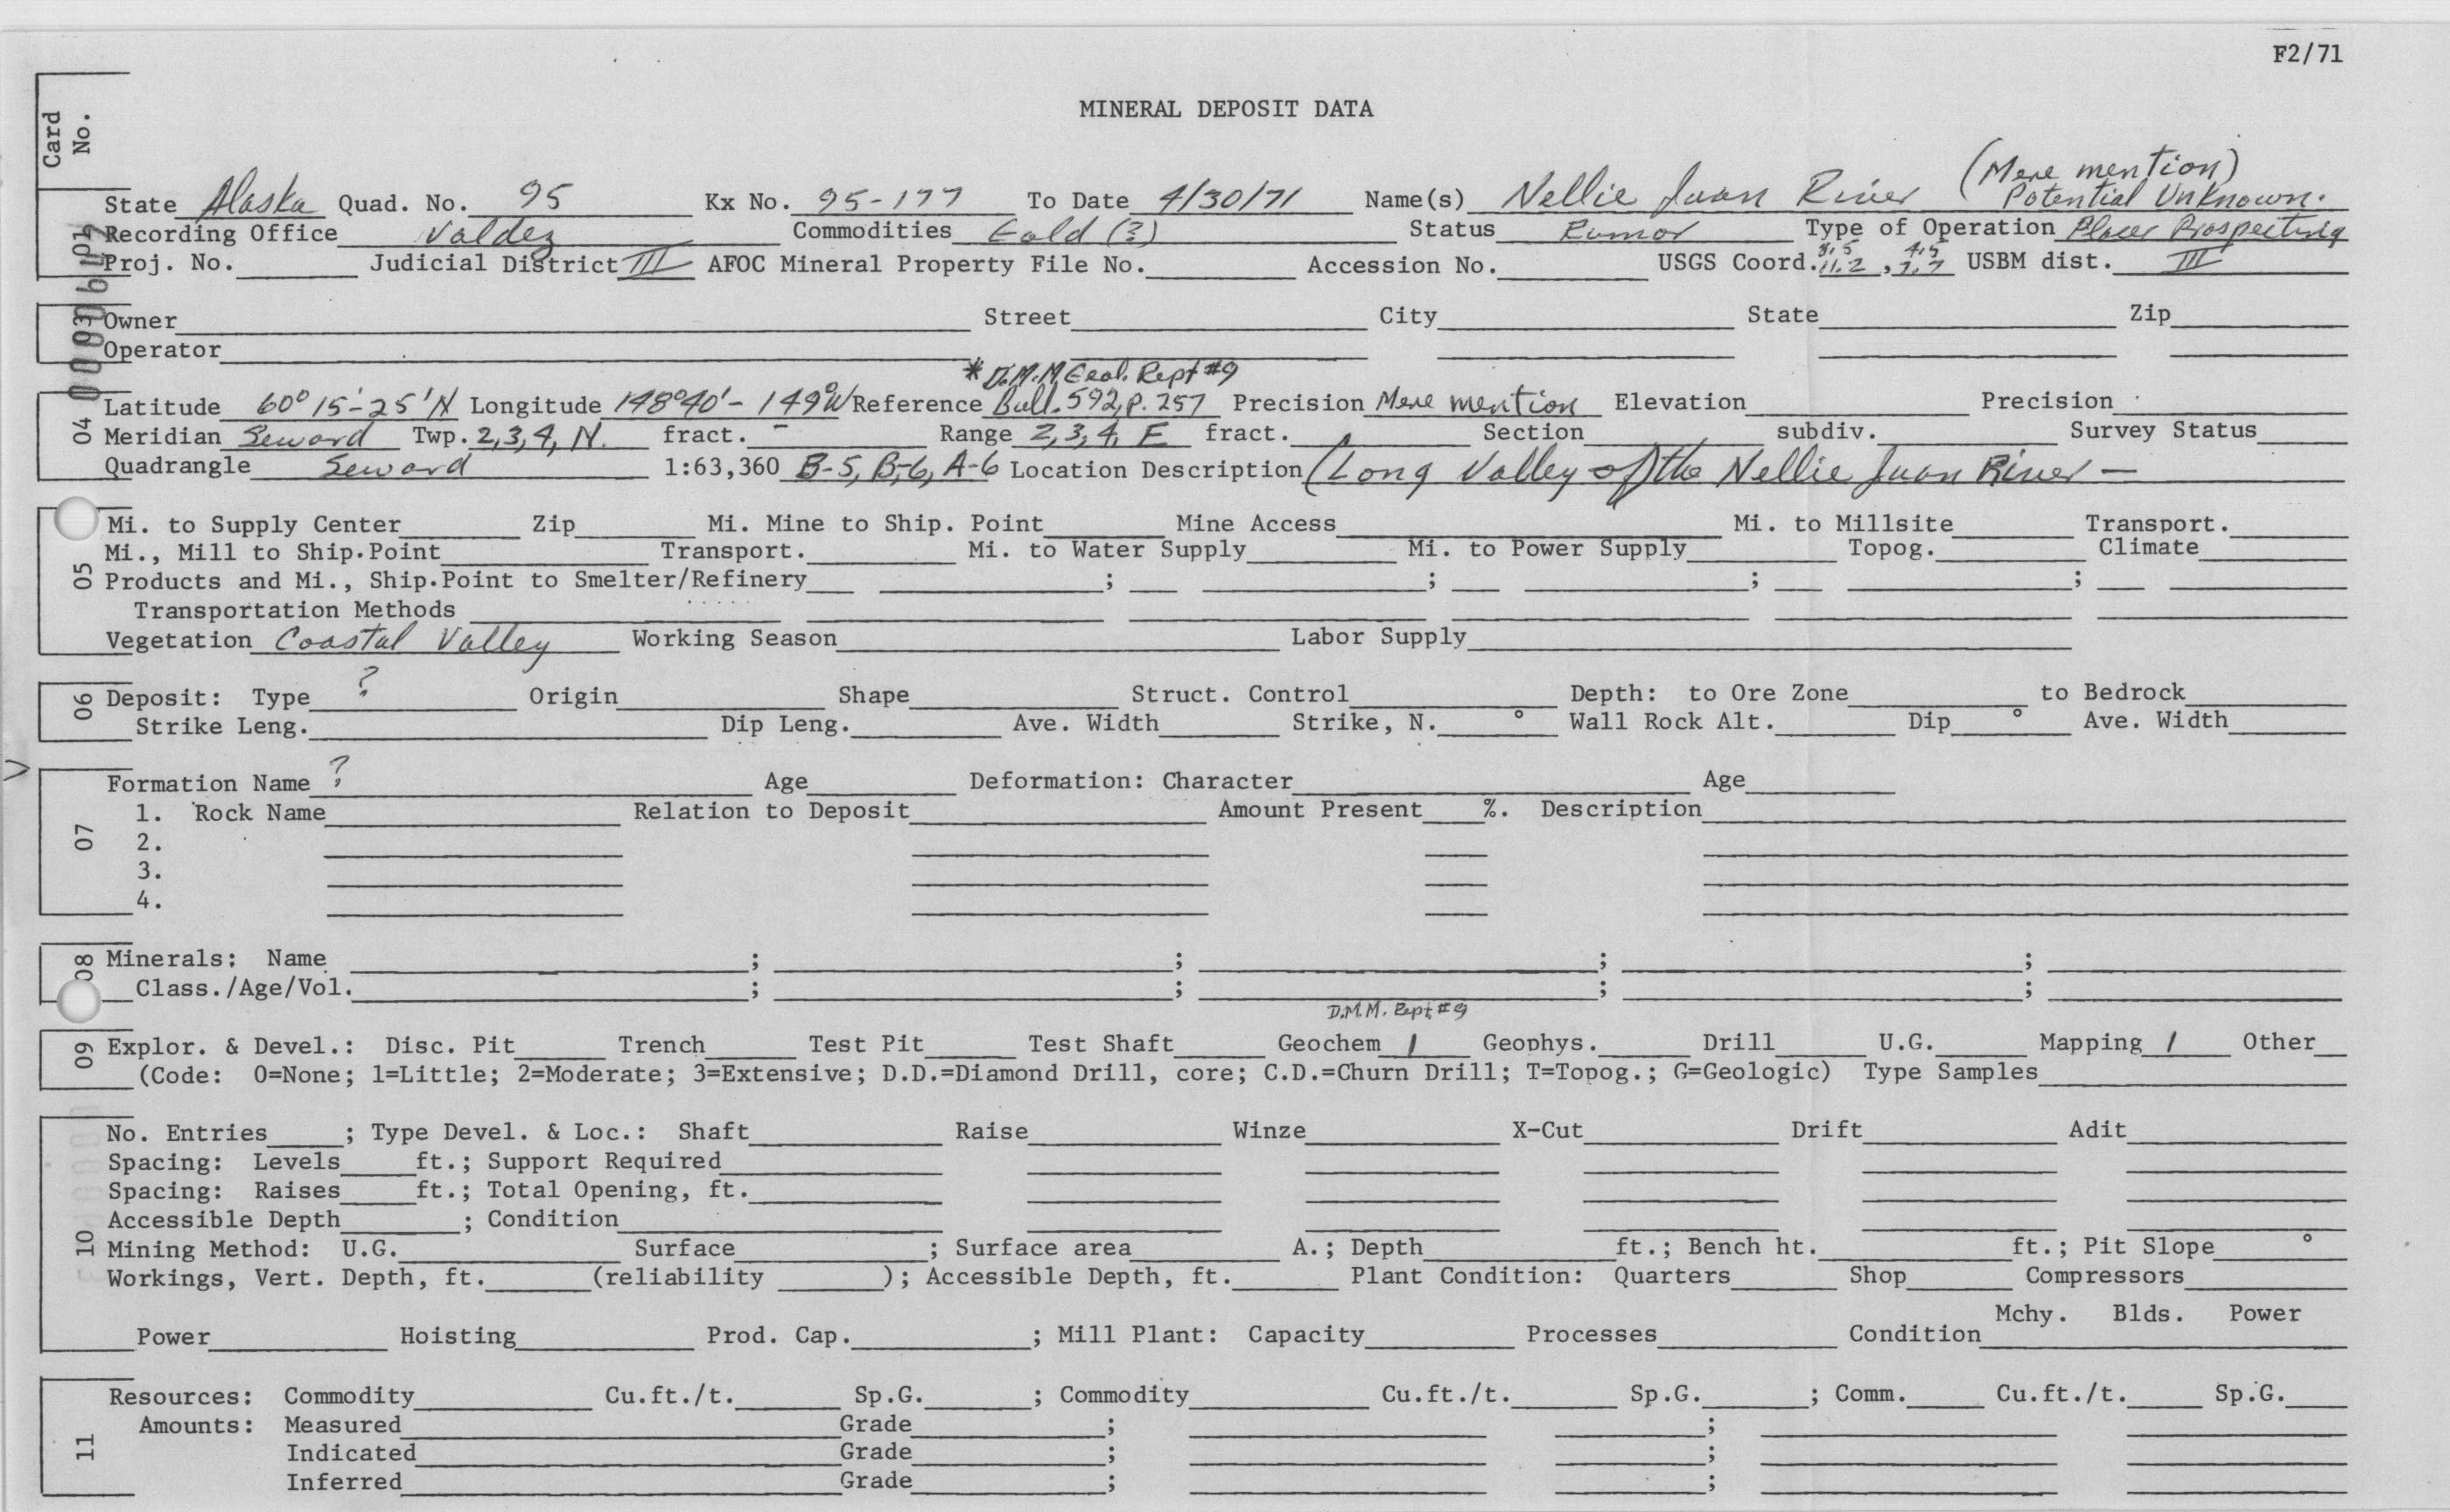 F2/71
MINERAL DEPOSIT DATA
Card
No.
(Mere mention)
Potential Unknown.
State Alaska Quad. No. 95 Kx No. 95-177 To Date 4/30/71 Name(s) Nellie Juan River
Recording Office Valdez Commodities Gold (?) Status Rumor Type of Operation Placer Prospecting
Proj. No. Judicial District III AFOC Mineral Property File No. Accession No. USGS Coord. 11.2, 7.7 USBM dist. III
Owner Street City State Zip
Operator
* D.M.M. Geol. Rept #9
04 Latitude 60° 15'-25' N Longitude 148°40' - 149° W Reference Bull. 592, p. 257 Precision Mere mention Elevation Precision
Meridian Seward Twp. 2,3,4, N. fract. - Range 2,3,4, E fract. Section subdiv. Survey Status
Quadrangle Seward 1:63,360 B-5, B-6, A-6 Location Description (Long Valley of the Nellie Juan River —
05 Mi. to Supply Center Zip Mi. Mine to Ship. Point Mine Access Mi. to Millsite Transport.
Mi., Mill to Ship.Point Transport. Mi. to Water Supply Mi. to Power Supply Topog. Climate
Products and Mi., Ship.Point to Smelter/Refinery ; ; ; ;
Transportation Methods
Vegetation Coastal Valley Working Season Labor Supply
06 Deposit: Type ? Origin Shape Struct. Control Depth: to Ore Zone to Bedrock
Strike Leng. Dip Leng. Ave. Width Strike, N. ° Wall Rock Alt. Dip ° Ave. Width
07 Formation Name ? Age Deformation: Character Age
1. Rock Name Relation to Deposit Amount Present %. Description
2.
3.
4.
08 Minerals: Name ; ; ; ;
Class./Age/Vol. ; ; ; ;
D.M.M. Rept #9
09 Explor. & Devel.: Disc. Pit Trench Test Pit Test Shaft Geochem 1 Geophys. Drill U.G. Mapping 1 Other
(Code: 0=None; 1=Little; 2=Moderate; 3=Extensive; D.D.=Diamond Drill, core; C.D.=Churn Drill; T=Topog.; G=Geologic) Type Samples
10 No. Entries ; Type Devel. & Loc.: Shaft Raise Winze X-Cut Drift Adit
Spacing: Levels ft.; Support Required
Spacing: Raises ft.; Total Opening, ft.
Accessible Depth ; Condition
Mining Method: U.G. Surface ; Surface area A.; Depth ft.; Bench ht. ft.; Pit Slope °
Workings, Vert. Depth, ft. (reliability ); Accessible Depth, ft. Plant Condition: Quarters Shop Compressors
Mchy. Blds. Power
Power Hoisting Prod. Cap. ; Mill Plant: Capacity Processes Condition
11 Resources: Commodity Cu.ft./t. Sp.G. ; Commodity Cu.ft./t. Sp.G. ; Comm. Cu.ft./t. Sp.G.
Amounts: Measured Grade ; ;
Indicated Grade ; ;
Inferred Grade ; ;